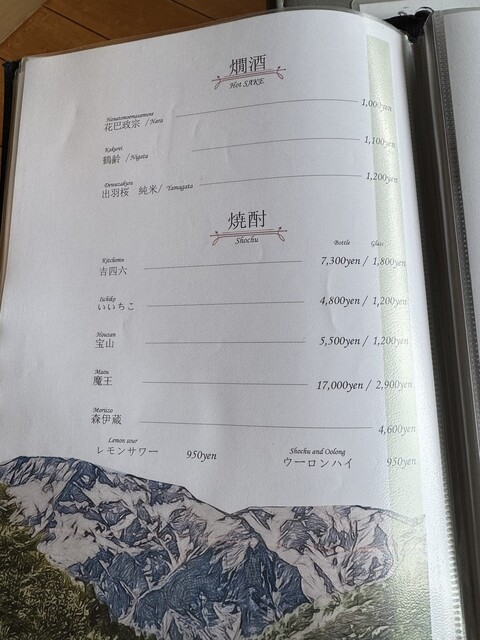 燗酒
Hot SAKE
Hanatomoemasamune
花巴政宗 /Nara 1,000yen
Kakurei
鶴齢 /Nigata 1,100yen
Dewazakura
出羽桜 純米/ Yamagata 1,200yen
焼酎
Shochu
Bottle Glass
Kitchomu
吉四六 7,300yen / 1,800yen
Iichiko
いいちこ 4,800yen / 1,200yen
Houzan
宝山 5,500yen / 1,200yen
Maou
魔王 17,000yen / 2,900yen
Morizo
森伊蔵 4,600yen
Lemon sour Shochu and Oolong
レモンサワー 950yen ウーロンハイ 950yen